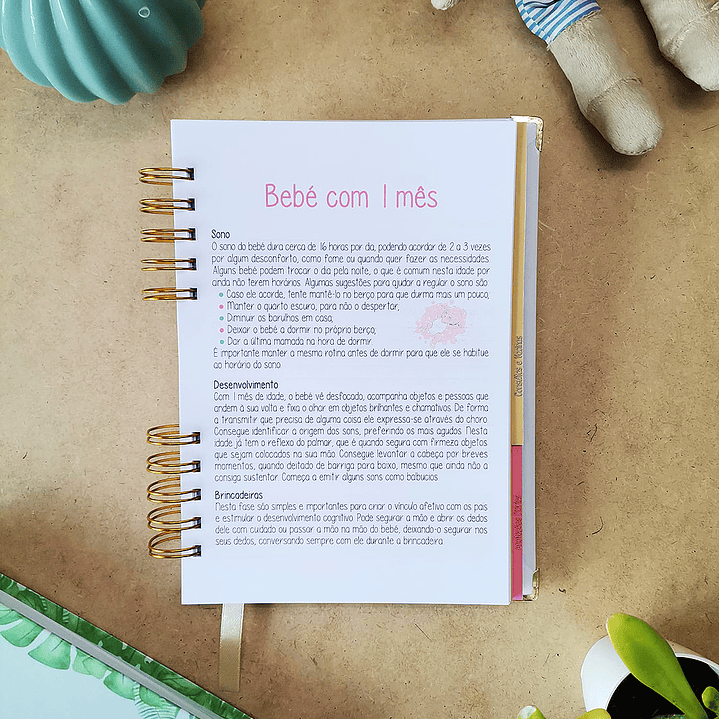 Bebé com 1 mês
Sono
O sono do bebé dura cerca de 16 horas por dia, podendo acordar de 2 a 3 vezes
por algum desconforto, como fome ou quando quer fazer as necessidades.
Alguns bebé podem trocar o dia pela noite, o que é comum nesta idade por
ainda não terem horários. Algumas sugestões para ajudar a regular o sono são:
Caso ele acorde, tente mantê-lo no berço para que durma mais um pouco,
Manter o quarto escuro, para não o despertar,
Diminuir os barulhos em casa,
Deixar o bebé a dormir no próprio berço,
Dar a última mamada na hora de dormir.
É importante manter a mesma rotina antes de dormir para que ele se habitue
ao horário do sono.
Desenvolvimento
Com 1 mês de idade, o bebé vê desfocado, acompanha objetos e pessoas que
andem à sua volta e fixa o olhar em objetos brilhantes e chamativos. De forma
a transmitir que precisa de alguma coisa ele expressa-se através do choro.
Consegue identificar a origem dos sons, preferindo os mais agudos. Nesta
idade já tem o reflexo do palmar, que é quando segura com firmeza objetos
que sejam colocados na sua mão. Consegue levantar a cabeça por breves
momentos, quando deitado de barriga para baixo, mesmo que ainda não a
consiga sustentar. Começa a emitir alguns sons como balbucios.
Brincadeiras
Nesta fase são simples e importantes para criar o vínculo afetivo com os pais
e estimular o desenvolvimento cognitivo. Pode segurar a mão e abrir os dedos
dele com cuidado ou passar a mão na mão do bebé, deixando-o segurar nos
seus dedos, conversando sempre com ele durante a brincadeira.